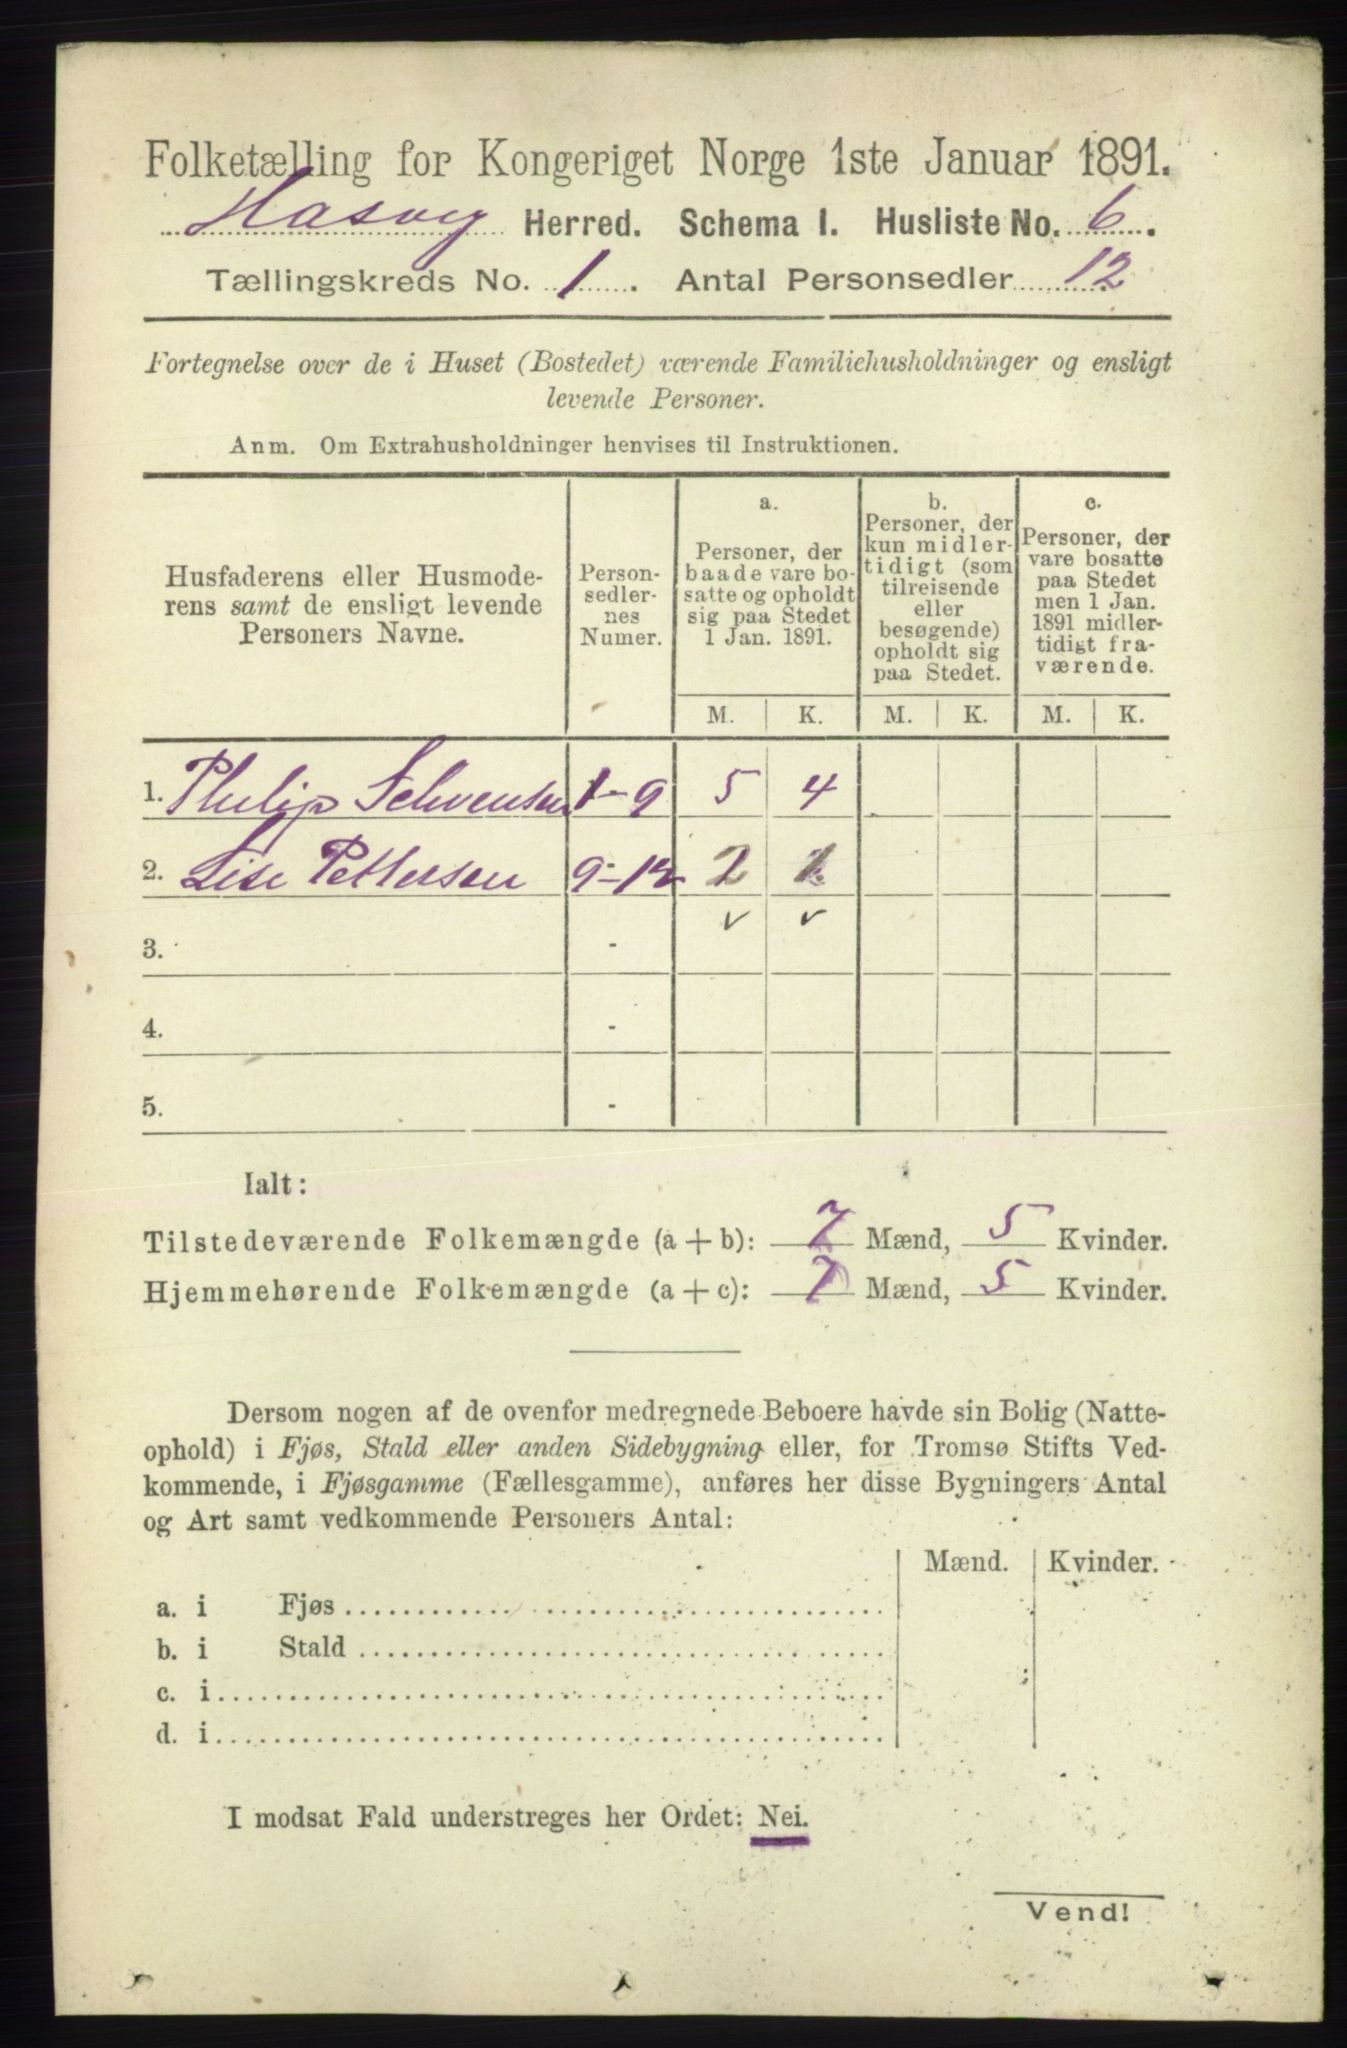 Folketælling for Kongeriget Norge 1ste Januar 1891.
Hasvig Herred. Schema I. Husliste No. 6.
Tællingskreds No. 1. Antal Personsedler 12
Fortegnelse over de i Huset (Bostedet) værende Familiehusholdninger og ensligt
levende Personer.
Anm. Om Extrahusholdninger henvises til Instruktionen.
Husfaderens eller Husmode-
rens samt de ensligt levende
Personers Navne.
Person-
sedler-
nes
Numer.
a.
Personer, der
baade vare bo-
satte og opholdt
sig paa Stedet
1 Jan. 1891.
b.
Personer, der
kun midler-
tidigt (som
tilreisende
eller
besøgende)
opholdt sig
paa Stedet.
c.
Personer, der
vare bosatte
paa Stedet
men 1 Jan.
1891 midler-
tidigt fra-
værende.
M. K. M. K. M. K.
1. Philip 1-9 5 4
2. Lise Pettersen 9-12 2 1
v v
3. -
4. -
5. -
Ialt:
Tilstedeværende Folkemængde (a + b): 7 Mænd, 5 Kvinder.
Hjemmehørende Folkemængde (a + c): 7 Mænd, 5 Kvinder.
Dersom nogen af de ovenfor medregnede Beboere havde sin Bolig (Natte-
ophold) i Fjøs, Stald eller anden Sidebygning eller, for Tromsø Stifts Ved-
kommende, i Fjøsgamme (Fællesgamme), anføres her disse Bygningers Antal
og Art samt vedkommende Personers Antal:
Mænd. Kvinder.
a. i Fjøs
b. i Stald
c. i
d. i
I modsat Fald understreges her Ordet: Nei.
Vend!